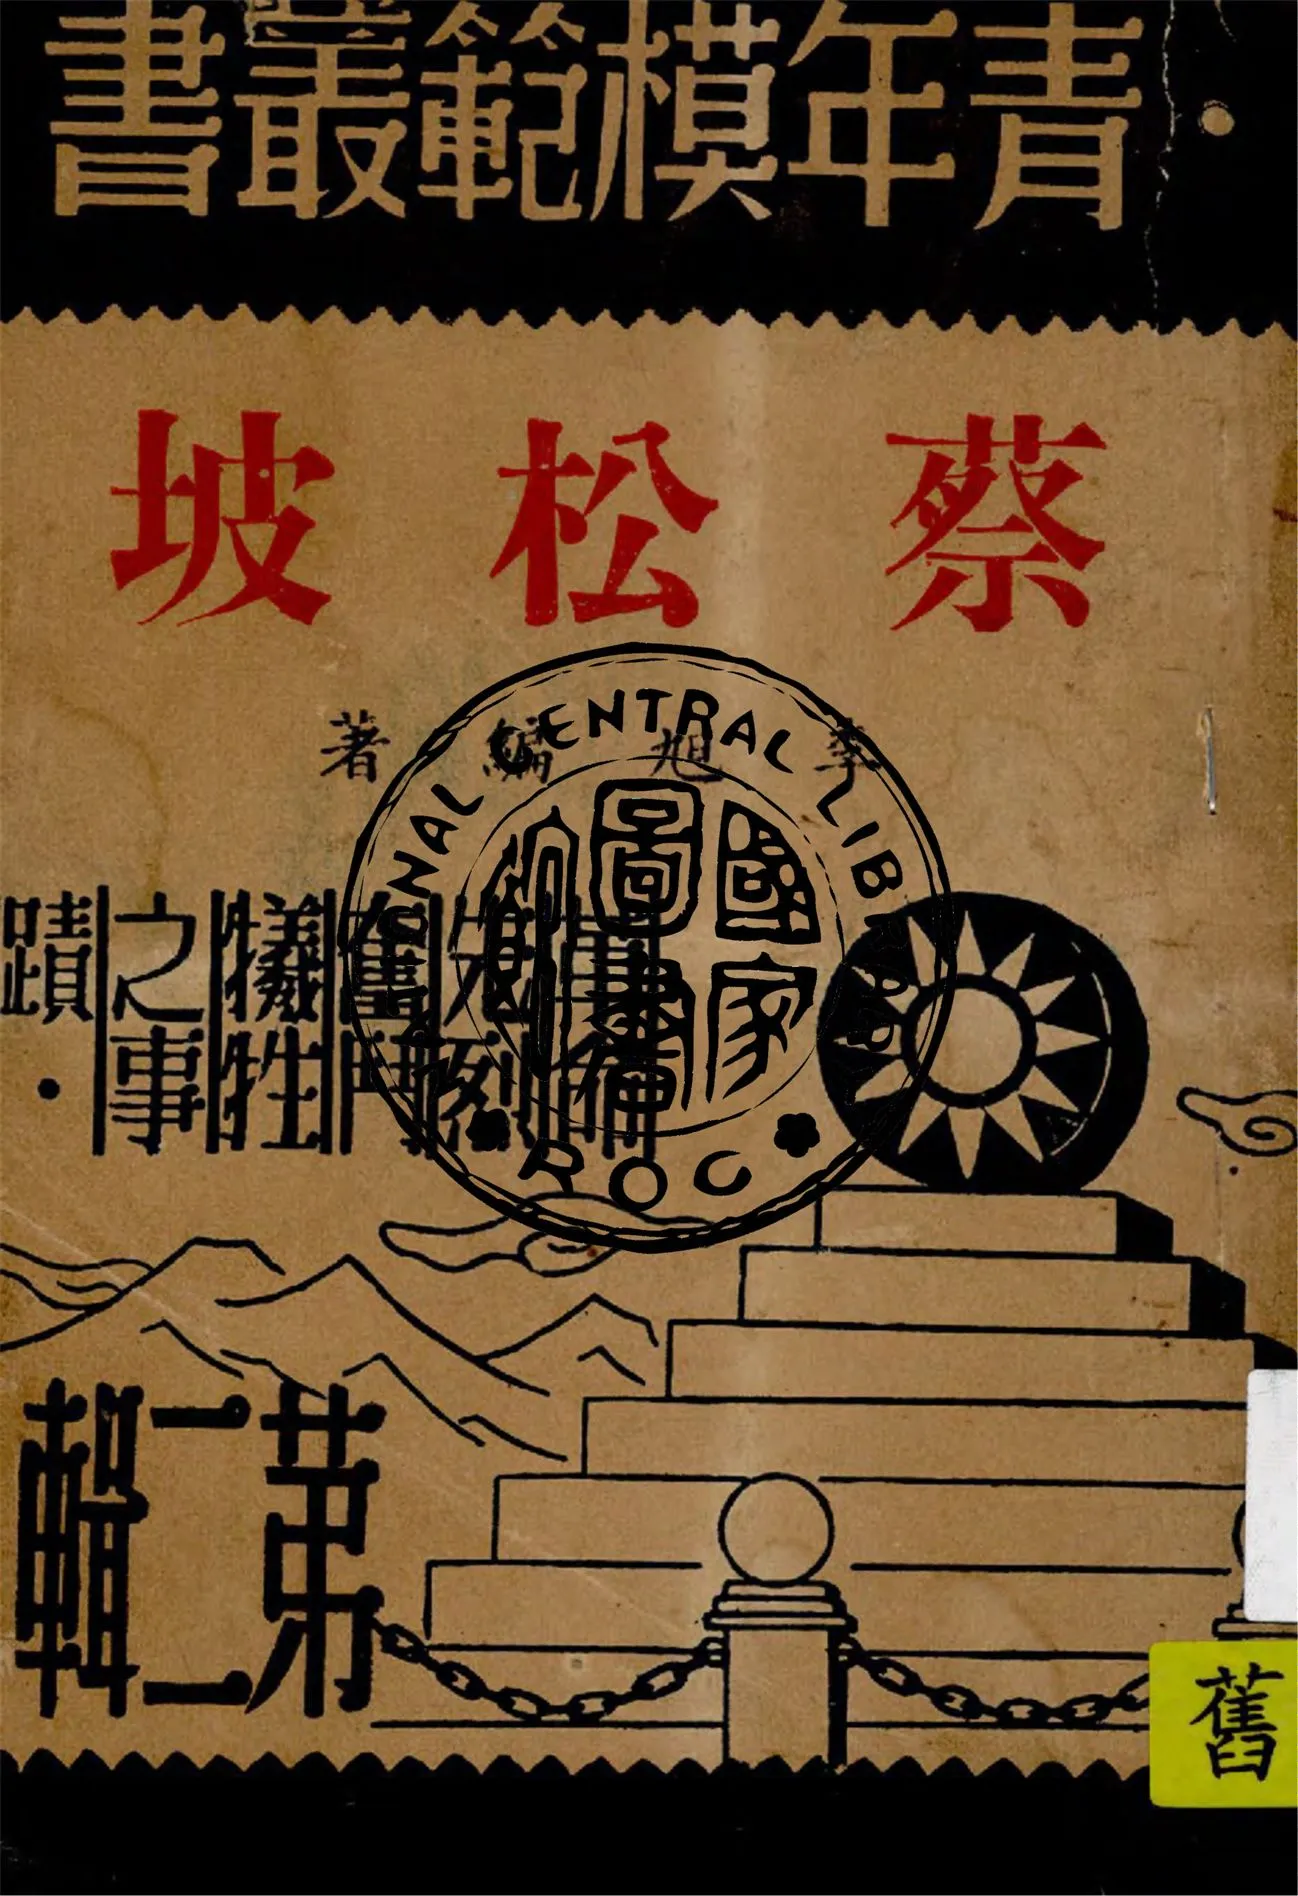 青年模範叢書
蔡松坡
李旭編著
革命
先烈
奮鬥
犧牲
之事
蹟
第二輯
NATIONAL CENTRAL LIBRARY
國家
圖書
館
ROC
舊